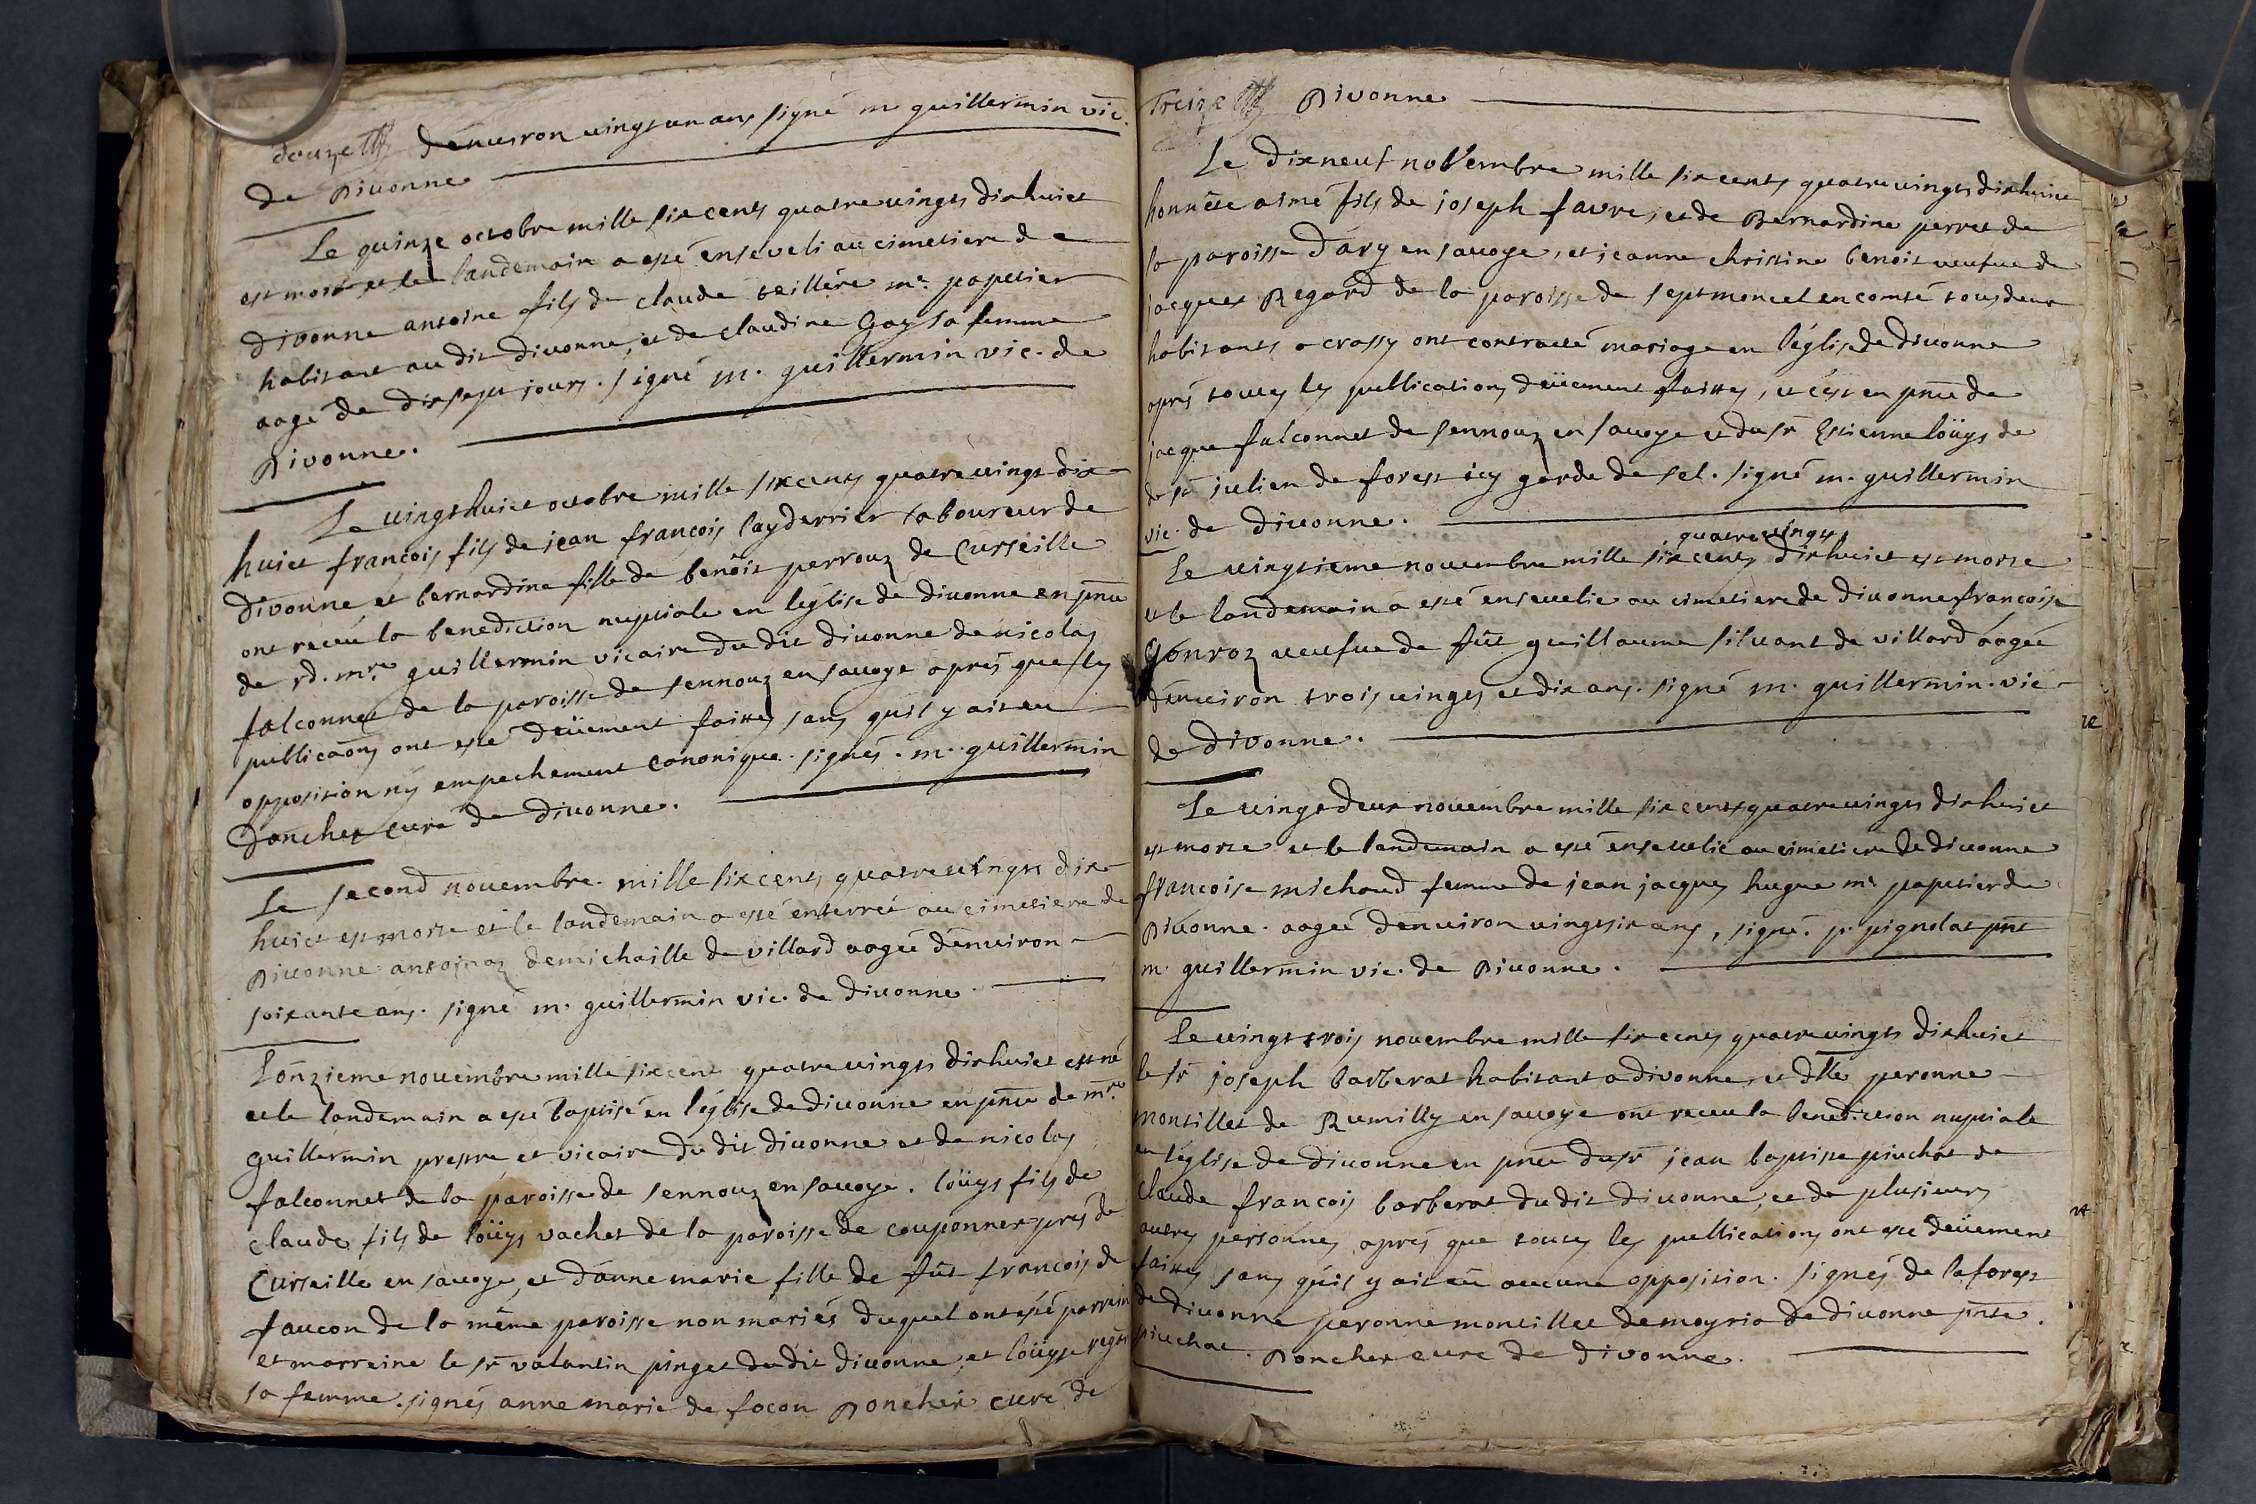 douze d'enuiron uingt un ans signé m guillermin vic.
de Diuonne
Le quinze octobre mille six cents quatre uingts dix huict
est mort et le landemain a esté enseveli au cimetiere de
divonne antoine fils de claude teillére mᵉ papetier
habitant au dit diuonne, et de claudine Gay sa femme
aagé de dix sept jours. signé m. guillermin vic. de
Divonne.
Le uingt huict octobre mille six cents quatre uingt dix
huict françois fils de jean françois layderrier laboureur de
divonne et bernardine fille de benôit perrouz de Curseille
ont receu la benediction nuptiale en l'église de diuonne en pnce
de rd. mre guillermin vicaire du dit diuonne de nicolas
falconnet de la paroisse de sennouz en sauoye aprés que les
publicaõns ont esté deüement faittes sans qu'il y ait eu
opposition ny empechement canonique. signés. m. guillermin
Doncher curé de diuonne.
Le second nouembre mille six cents quatre uingts dix
huict est morte et le landemain a esté enterrée au cimetiere de
Diuonne antoinaz demichaille de villard aagée d'enuiron
soixante ans. signé m. guillermin vic. de diuonne.
L'onzieme nouembre mille six cent quatre uingts dix huict est né
et le landemain a esté baptisé en l'église de diuonne en pnce de mre
guillermin prestre et vicaire du dit diuonne et de nicolas
falconnet de la paroisse de sennouz en sauoye. loüys fils de
claude fils de loüys vachet de la paroisse de couponnex prés de
Curseille en sauoye, et d'anne marie fille de fût françois de
faucon de la même paroisse non mariés duquel ont esté parrain
et marreine le sr valantin pinget du dit diuonne, et loüyse
sa femme. signés anne marie de facon Doncher curé de
Treize Divonne
Le dixneuf noVembre mille six cents quatre uingts dix huict
honnête aimé fils de joseph favre, et de Bernardine perret de
la paroisse d'ary en sauoye, et jeanne christine benoit ueufue de
jacques Regard de la paroisse de septmoncel en comté tous deux
habitants a crassy ont contracté mariage en l'église de diuonne
aprés toutes les publications deüement faittes, et c'est en pnce de
jacque falconnet de sennouz en sauoye et du sr Estienne loüys de
de st julien de forest icy garde de sel. signé m. guillermin
vic. de diuonne.
quatre uingts
Le uingtieme nouembre mille six cents dix huict est morte
et le landemain a esté enseuelie au cimetiere de diuonne francoise
Gonroz ueufue de fût guillaume siluant de villard aagée
d'enuiron trois uingts et dix ans. signé m. guillermin. vic
de divonne.
Le uingt deux nouembre mille six cents quatre uingts dix huict
est morte et le landemain a esté enseuelie au cimetiere de diuonne
francoise michaud femme de jean jacques hugue mᵉ papetier de
Diuonne. aagée d'enuiron uingt six ans, signé. p. pignolat pnt
m. guillermin vic. de Diuonne.
Le uingt trois nouembre mille six cents quatre uingts dix huict
le sr joseph barberat habitant a divonne, et dlle peronne
montillet de Rumilly en sauoye ont receu la benediction nuptiale
en l'église de diuonne en pnce du sr jean baptiste piuchat de
claude françois barberat du dit diuonne, et de plusieurs
autres personnes aprés que toutes les publications ont esté deüement
faittes sans qu'il y ait eû aucune opposition. signés de la forest
de diuonne peronne montillet de moyria de diuonne pnte.
piuchat. Doncher curé de divonne.